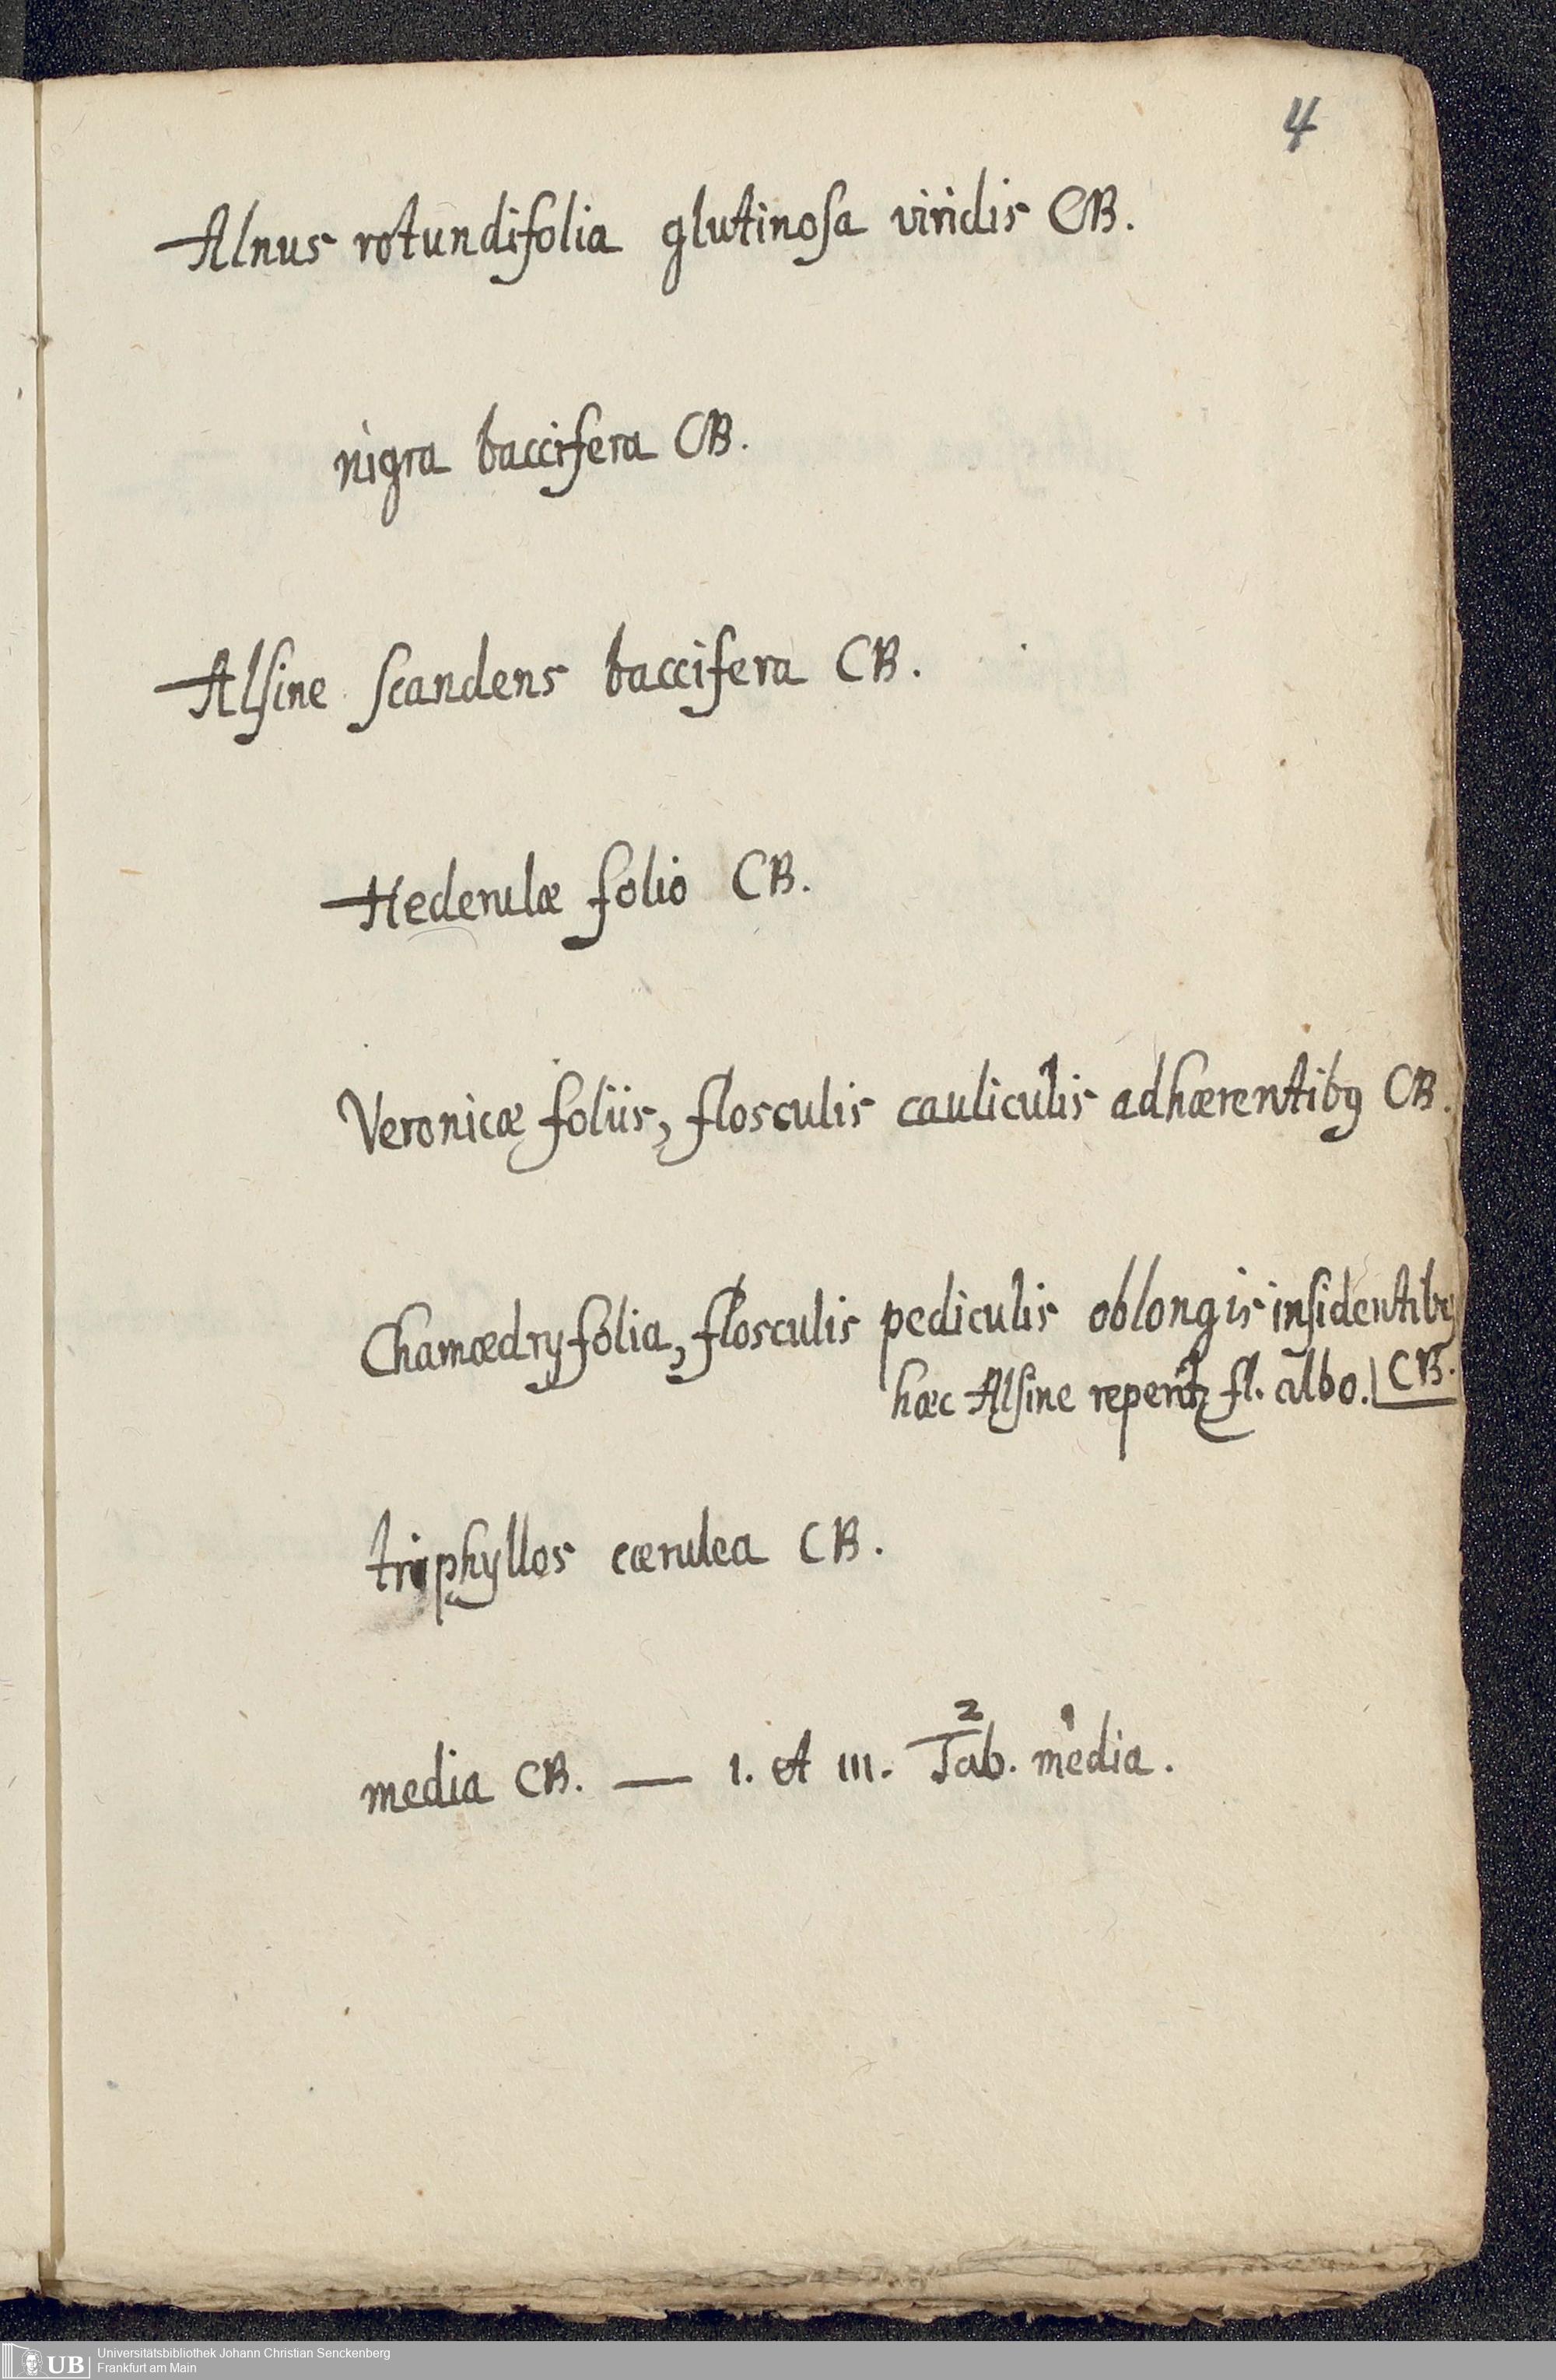 4
Alnus rotundifolia glutinoſa viridis CB.
nigra baccifera CB.
Alſine ſcandens baccifera CB.
Hederulæ folio CB.
Veronicæ foliis, flosculis cauliculis adhærentibꝰ CB.
Chamædryfolia, flosculis pediculis oblongis inſidentibꝰ
hæc Alſine fl. albo. CB.
triphyllos cærulea CB.
2
media CB. — I. et III. Tab. media.
UB Universitätsbibliothek Johann Christian Senckenberg
Frankfurt am Main